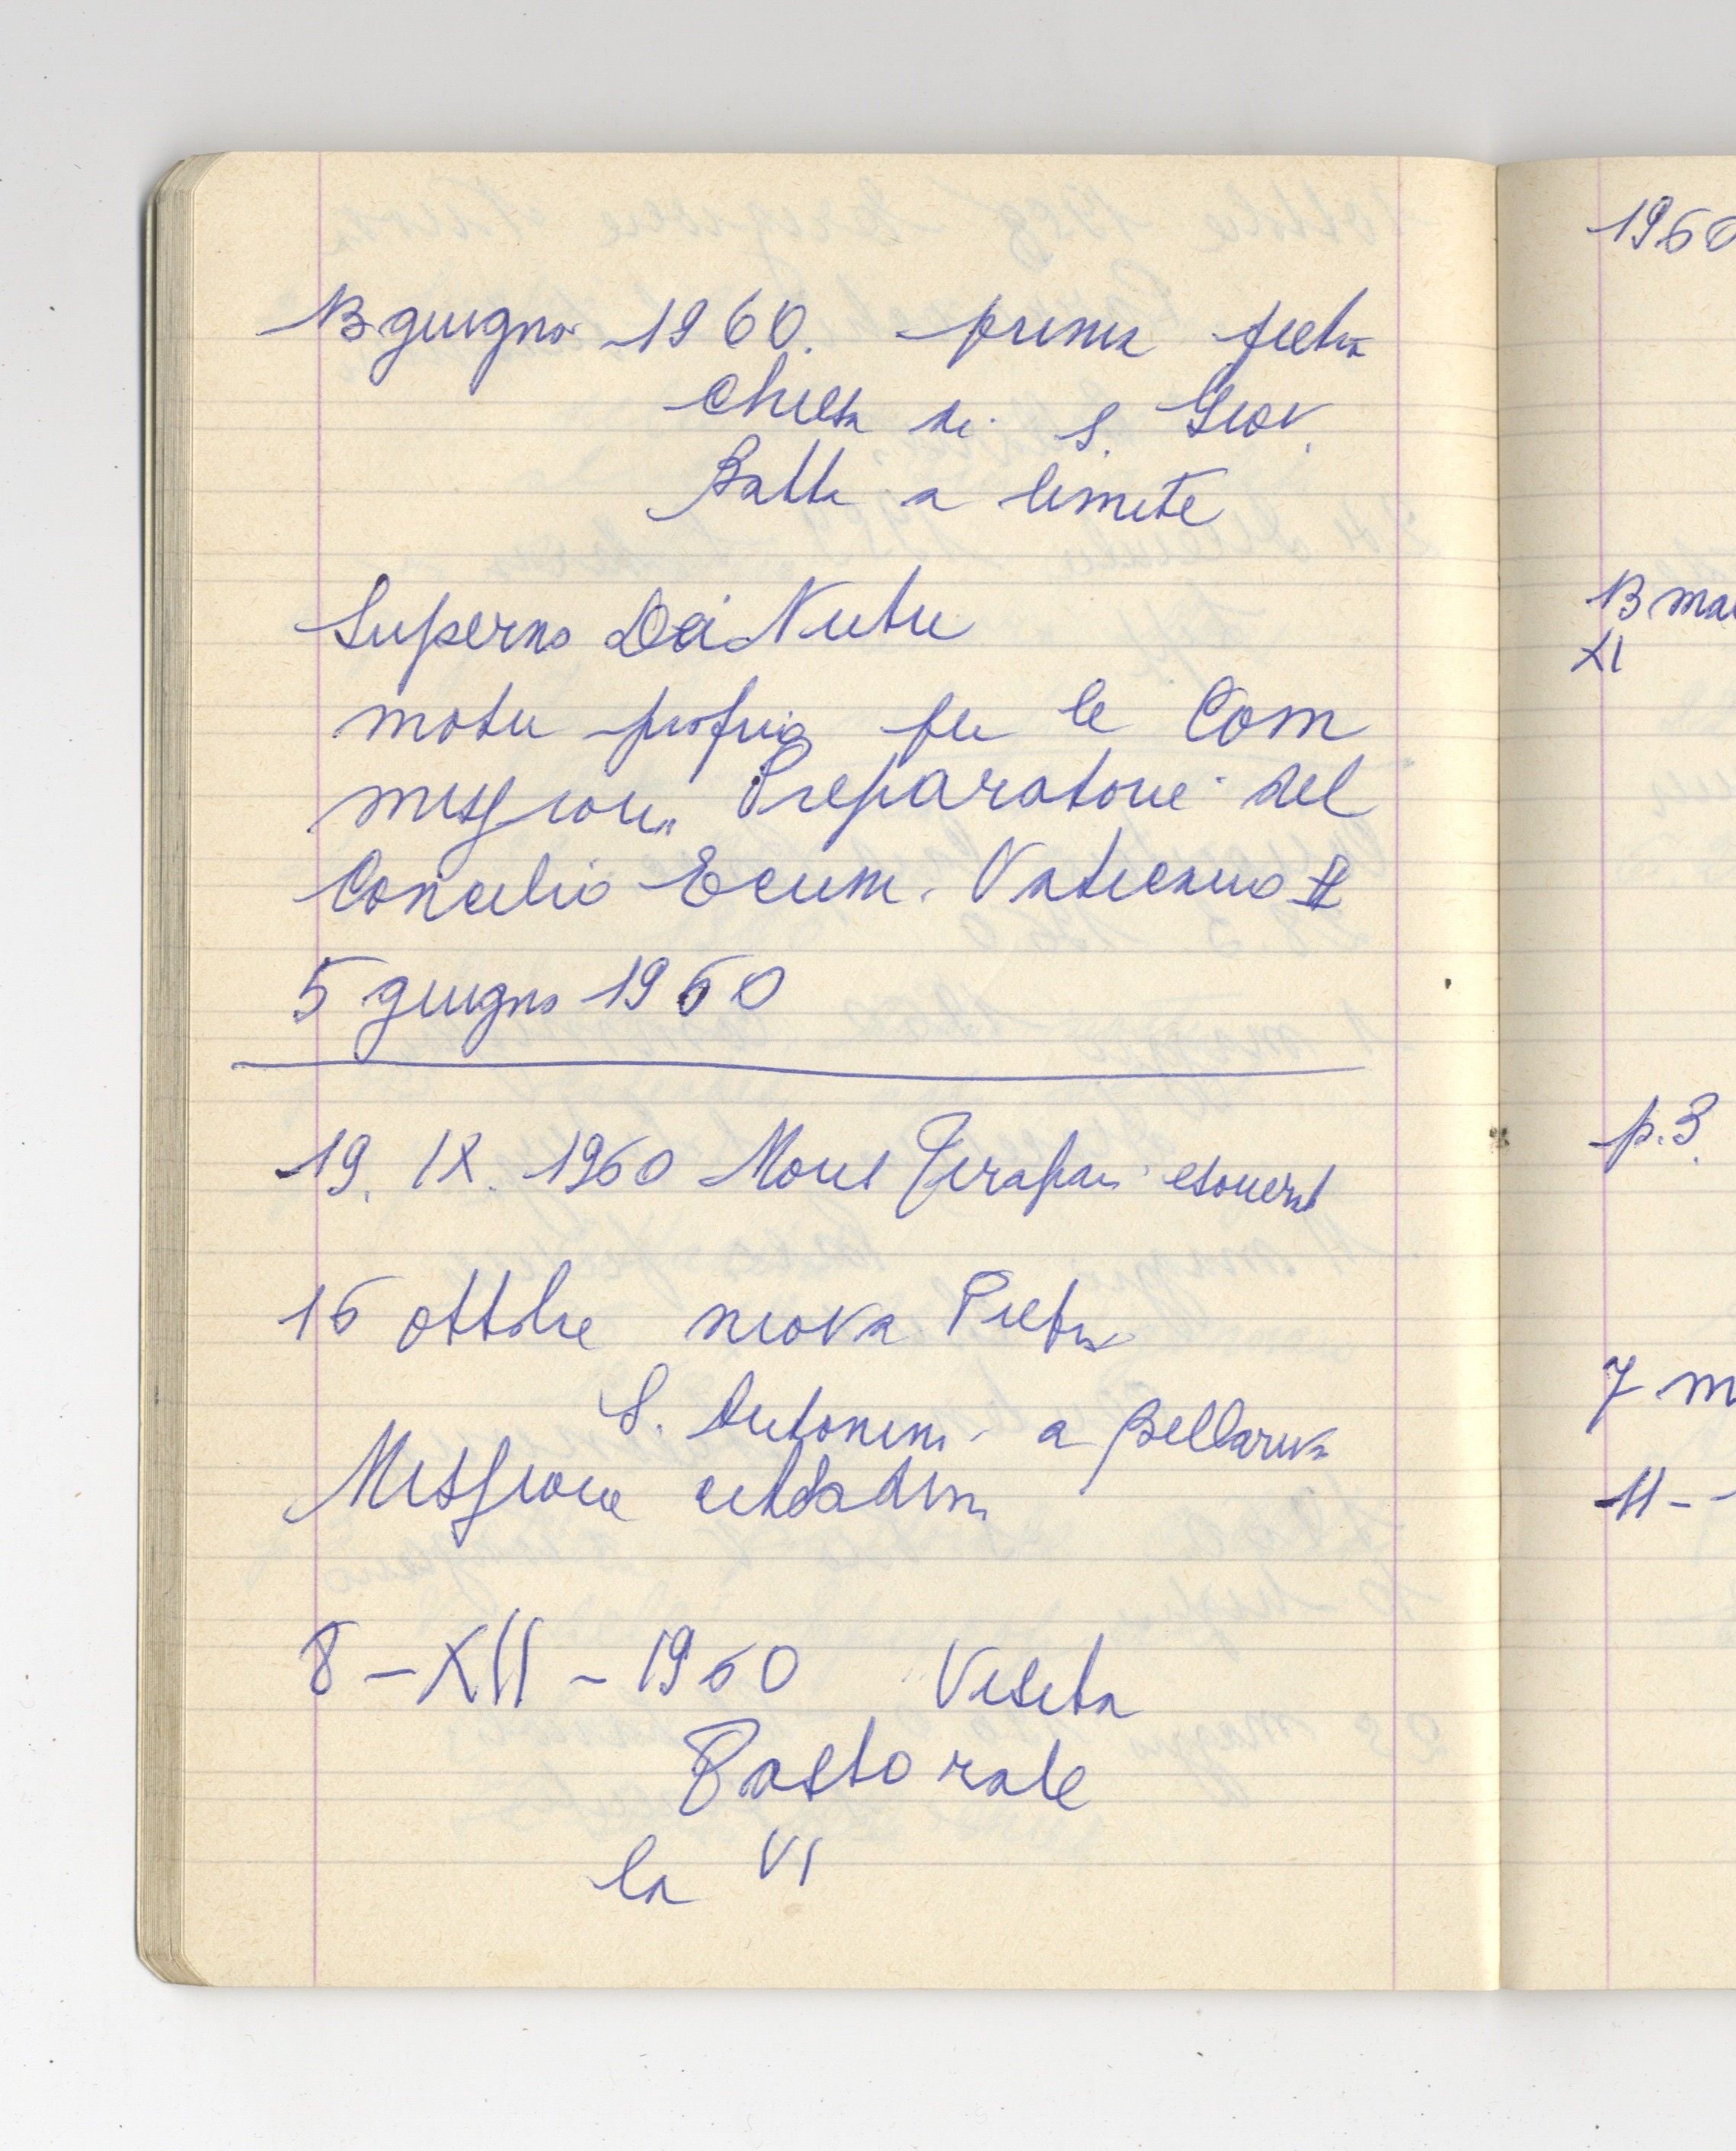 13 giugno 1960. prima pietra
Chiesa di S. Giov.
Batta a limite
Superno Dei Nutu
motu proprio per le Com
missioni Preparatorie del
Concilio Ecum. Vaticano II
5 giugno 1960
19. IX. 1960 Mons Tirapani
16 ottobre nuova Pietra
S. Antonino a Bellariva
Missione cittadina
8 - XII - 1960 Visita
Pastorale
la VI
1960
13 mag
XI
p. 3.
7 m
11 -